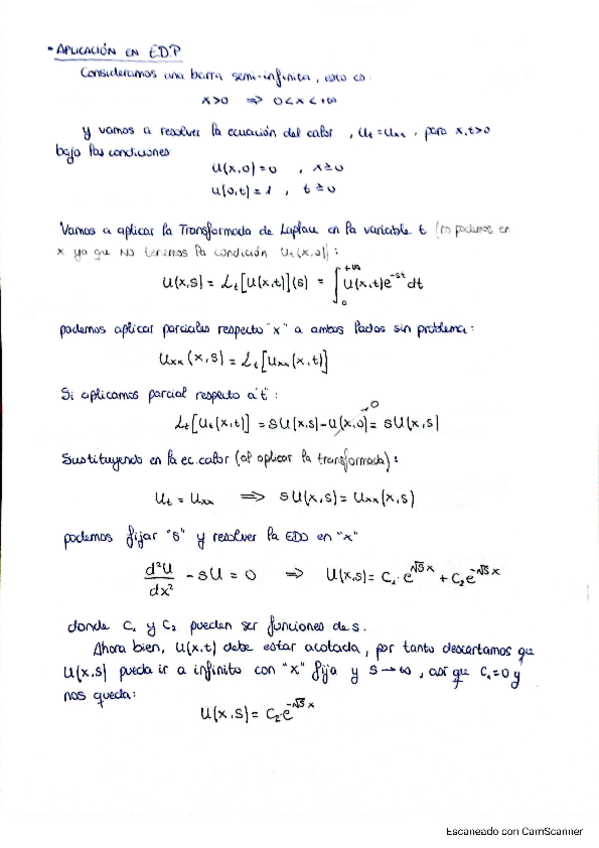 - APLICACIÓN EN EDP
Consideramos una barra semi-infinita, esto es:
x>0 ⇒ 0<x<+∞
y vamos a resolver la ecuación del calor, Ut=Uxx, para x,t>0
bajo las condiciones:
U(x,0)=0 , x≥0
U(0,t)=1 , t≥0
Vamos a aplicar la Transformada de Laplace en la variable t (no podemos en
x ya que NO tenemos la condición Ut(x,0)):
U(x,s) = ℒt[U(x,t)](s) = ∫₀^{+∞} U(x,t)e^{-st} dt
podemos aplicar parciales respecto "x" a ambos lados sin problema:
Uxx(x,s) = ℒt[Uxx(x,t)]
Si aplicamos parcial respecto a "t":
ℒt[Ut(x,t)] = sU(x,s)-U(x,0)→0 = sU(x,s)
Sustituyendo en la ec.calor (al aplicar la transformada):
Ut = Uxx ⟹ sU(x,s) = Uxx(x,s)
podemos fijar "s" y resolver la EDO en "x"
d²U/dx² - sU = 0 ⇒ U(x,s) = C₁·e^{√s x} + C₂e^{-√s x}
donde C₁ y C₂ pueden ser funciones de s.
Ahora bien, U(x,t) debe estar acotada, por tanto descartamos que
U(x,s) pueda ir a infinito con "x" fija y s→∞, así que C₁=0 y
nos queda:
U(x,s) = C₂e^{-√s x}
Escaneado con CamScanner